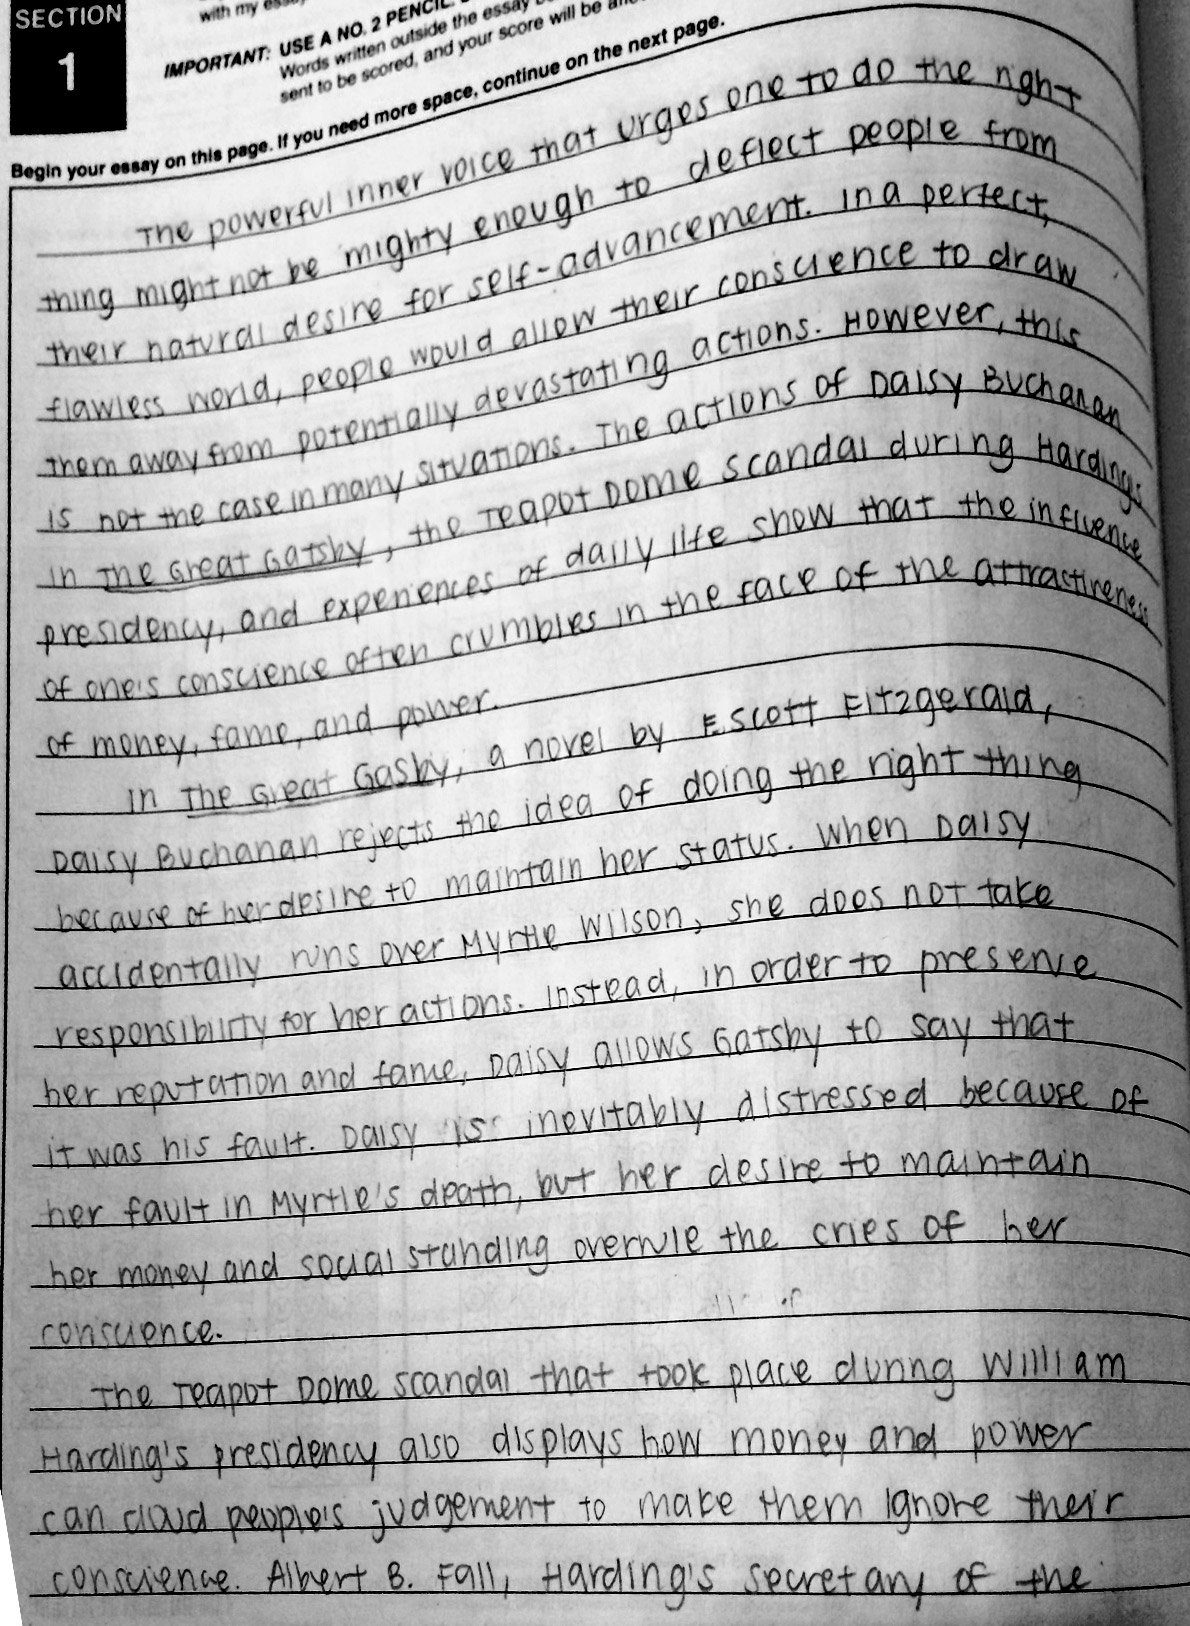 SECTION
1
with my
IMPORTANT: USE A NO. 2 PENCIL.
Words written outside the essay
sent to be scored, and your score will be
Begin your essay on this page. If you need more space, continue on the next page.
The powerful inner voice that urges one to do the right
thing might not be mighty enough to deflect people from
their natural desire for self-advancement. In a perfect,
flawless world, people would allow their conscience to draw
them away from potentially devastating actions. However, this
is not the case in many situations. The actions of Daisy Buchanan
in The Great Gatsby, the Teapot Dome scandal during Harding's
presidency, and experiences of daily life show that the influence
of one's conscience often crumbles in the face of the attractiveness
of money, fame, and power.
In The Great Gasby, a novel by F. Scott Fitzgerald,
Daisy Buchanan rejects the idea of doing the right thing
because of her desire to maintain her status. When Daisy
accidentally runs over Myrtle Wilson, she does not take
responsibility for her actions. Instead, in order to preserve
her reputation and fame, Daisy allows Gatsby to say that
it was his fault. Daisy is inevitably distressed because of
her fault in Myrtle's death, but her desire to maintain
her money and social standing overrule the cries of her
conscience.
The Teapot Dome scandal that took place during William
Harding's presidency also displays how money and power
can cloud people's judgement to make them ignore their
conscience. Albert B. Fall, Harding's secretary of the